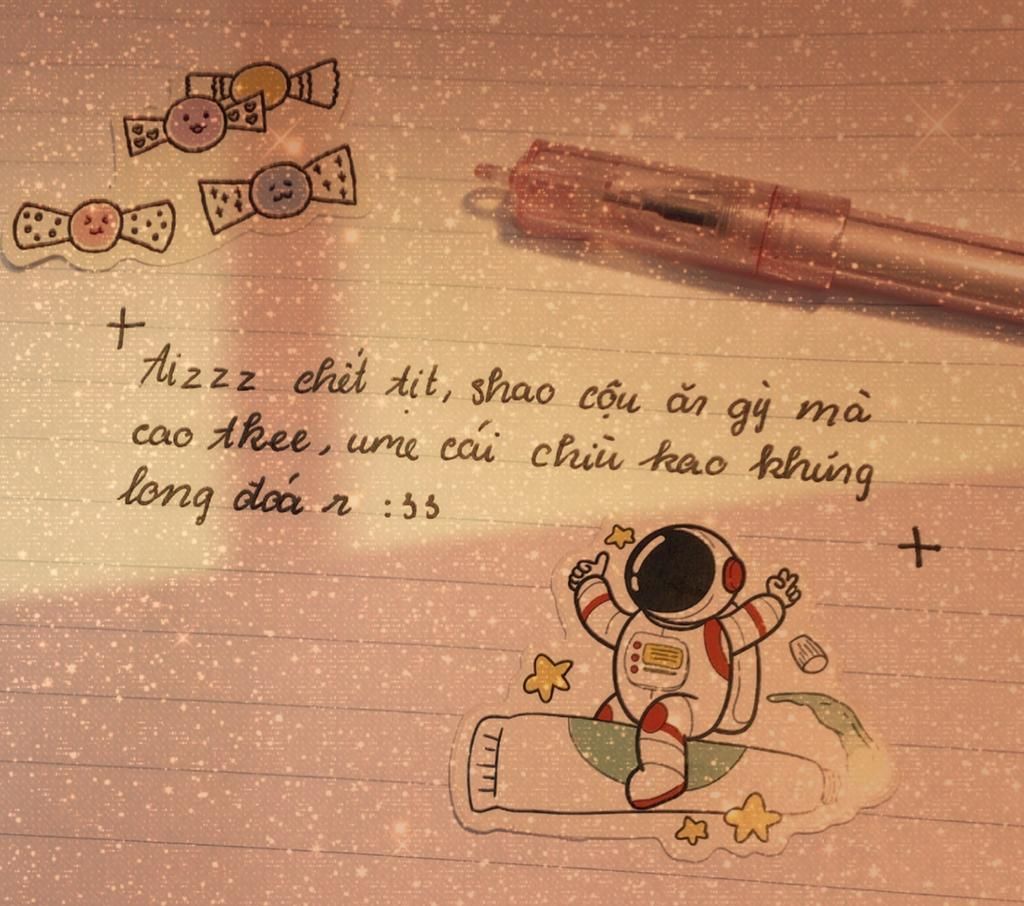 Aizzz chết tịt, shao cộu ăn gỳ mà
cao thee, ume cái chiù kao khúng
long đoá r :33